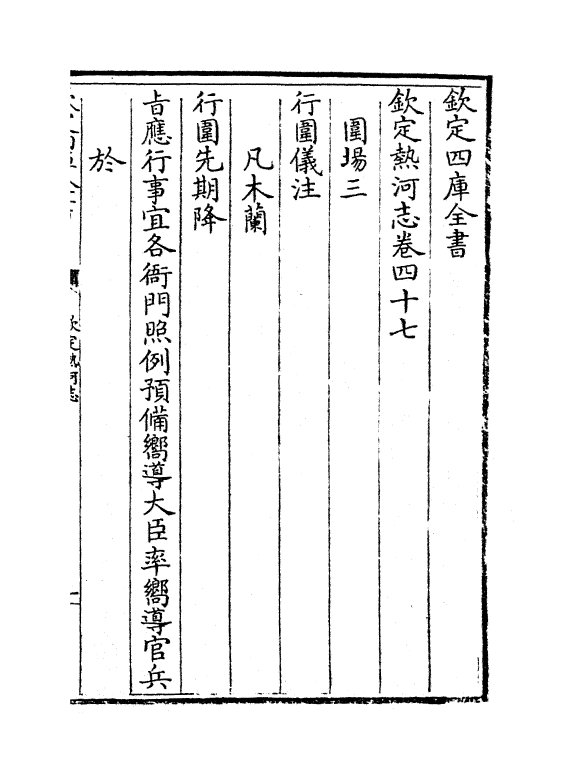 欽定四庫全書
欽定熱河志卷四十七
圍場三
行圍儀注
凡木蘭
行圍先期降
㫖應行事宜各衙門照例預備嚮導大臣率嚮導官兵
於
欽定熱河志